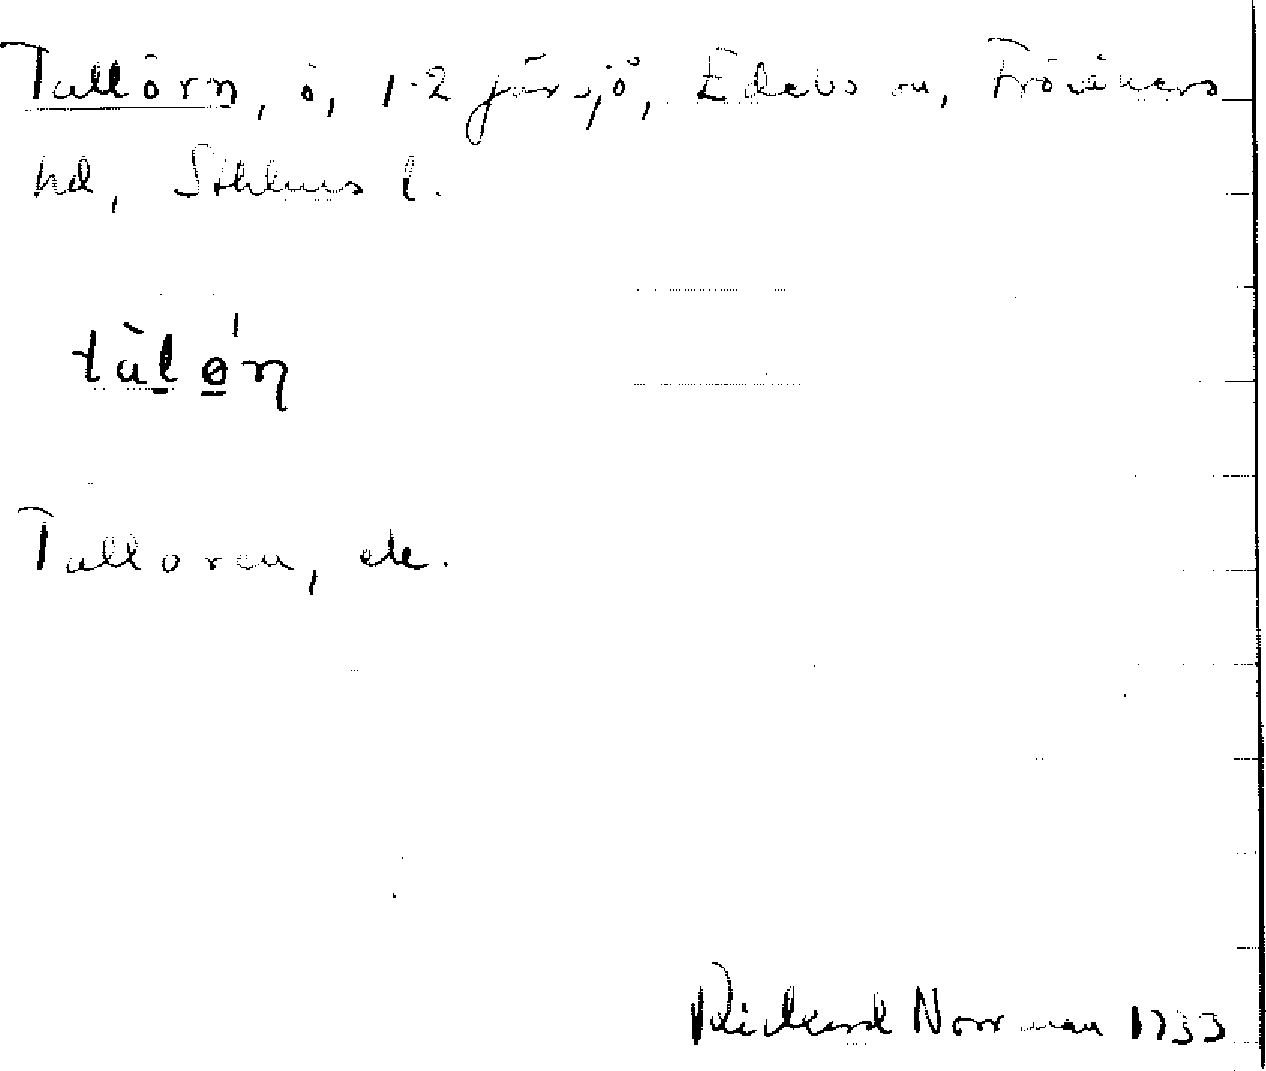 Tallörn, ö, 1-2 i järsjö, Edebo sn, Frösåkers
hd, Sthlms l.
tàl ǿn
Talloren, ek.
Rickard Norrman 1933